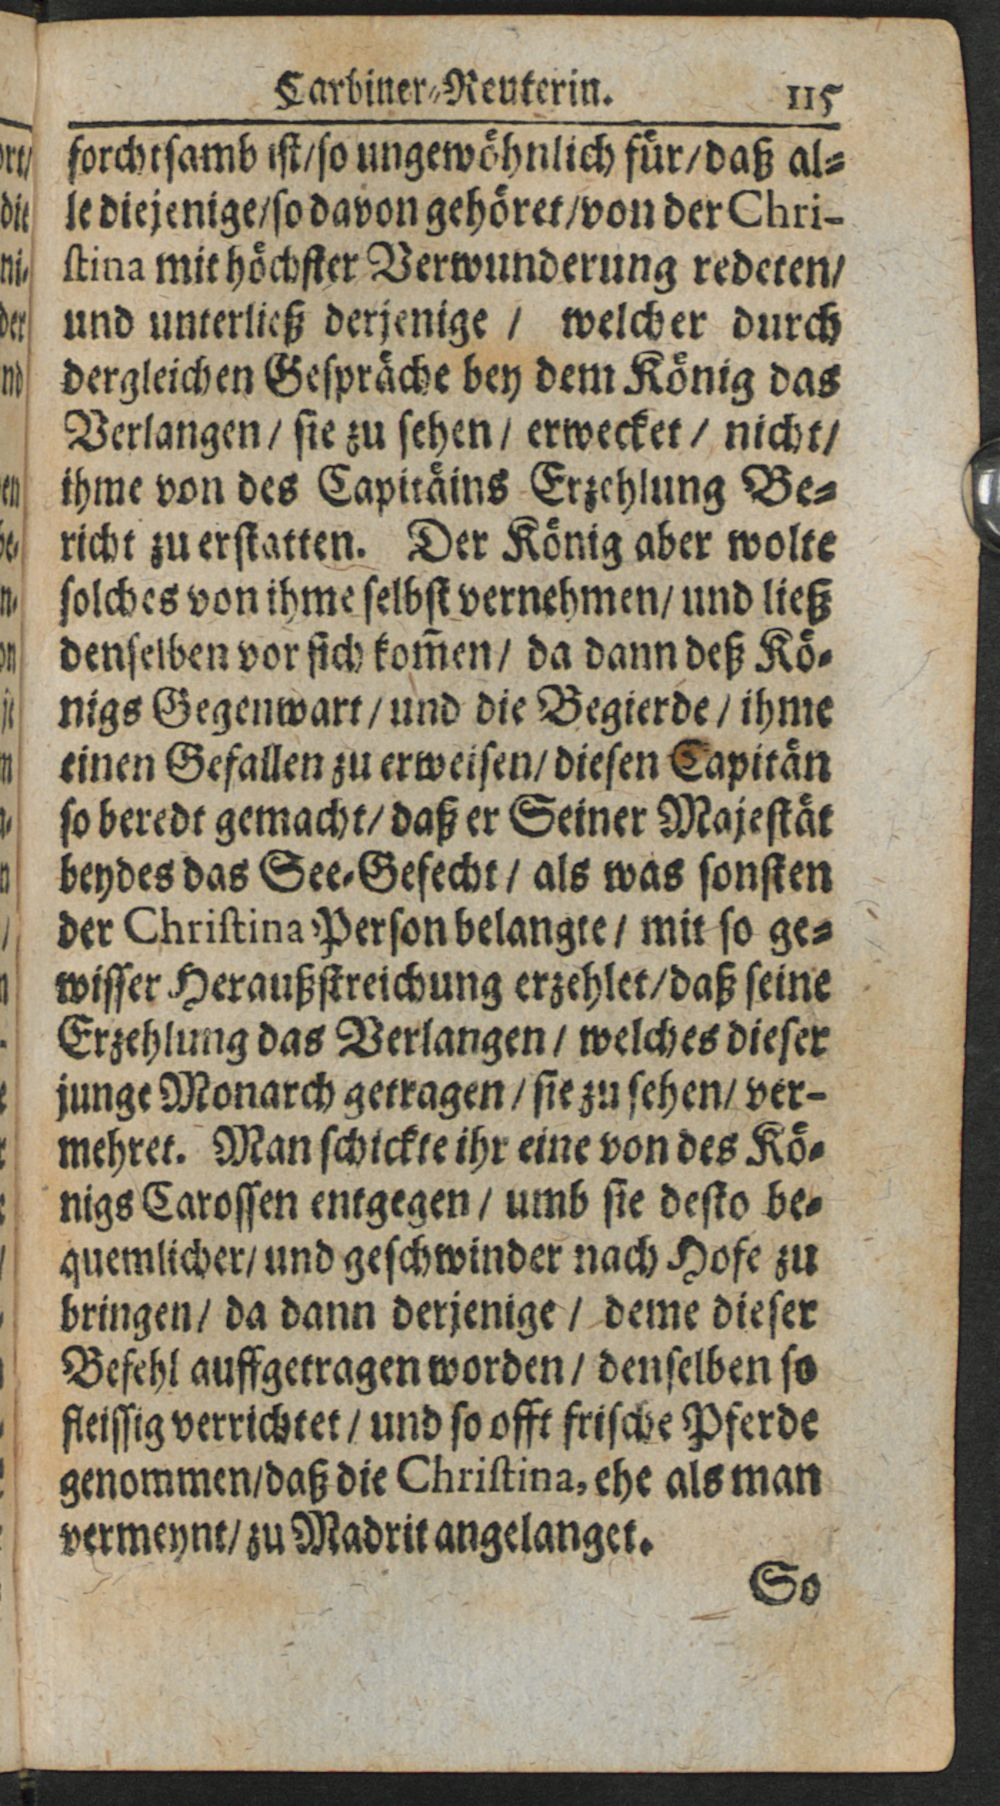 Carbiner-Reuterin. 115
forchtsamb ist/so ungewöhnlich für/daß al-
le diejenige/so davon gehöret/von der Chri-
stina mit höchster Verwunderung redeten/
und unterließ derjenige / welcher durch
dergleichen Gespräche bey dem König das
Verlangen / sie zu sehen / erwecket / nicht/
ihme von des Capitäins Erzehlung Be-
richt zu erstatten. Der König aber wolte
solches von ihme selbst vernehmen/ und ließ
denselben vor sich kom̃en / da dann deß Kö-
nigs Gegenwart / und die Begierde / ihme
einen Gefallen zu erweisen/ diesen Capitän
so beredt gemacht/ daß er Seiner Majestät
beydes das See-Gefecht / als was sonsten
der Christina Person belangte / mit so ge-
wisser Heraußstreichung erzehlet/daß seine
Erzehlung das Verlangen / welches dieser
junge Monarch getragen / sie zu sehen/ ver-
mehret. Man schickte ihr eine von des Kö-
nigs Carossen entgegen / umb sie desto be-
quemlicher/ und geschwinder nach Hofe zu
bringen / da dann derjenige / deme dieser
Befehl auffgetragen worden / denselben so
fleissig verrichtet / und so offt frische Pferde
genommen/daß die Christina, ehe als man
vermeynt/ zu Madrit angelanget.
So